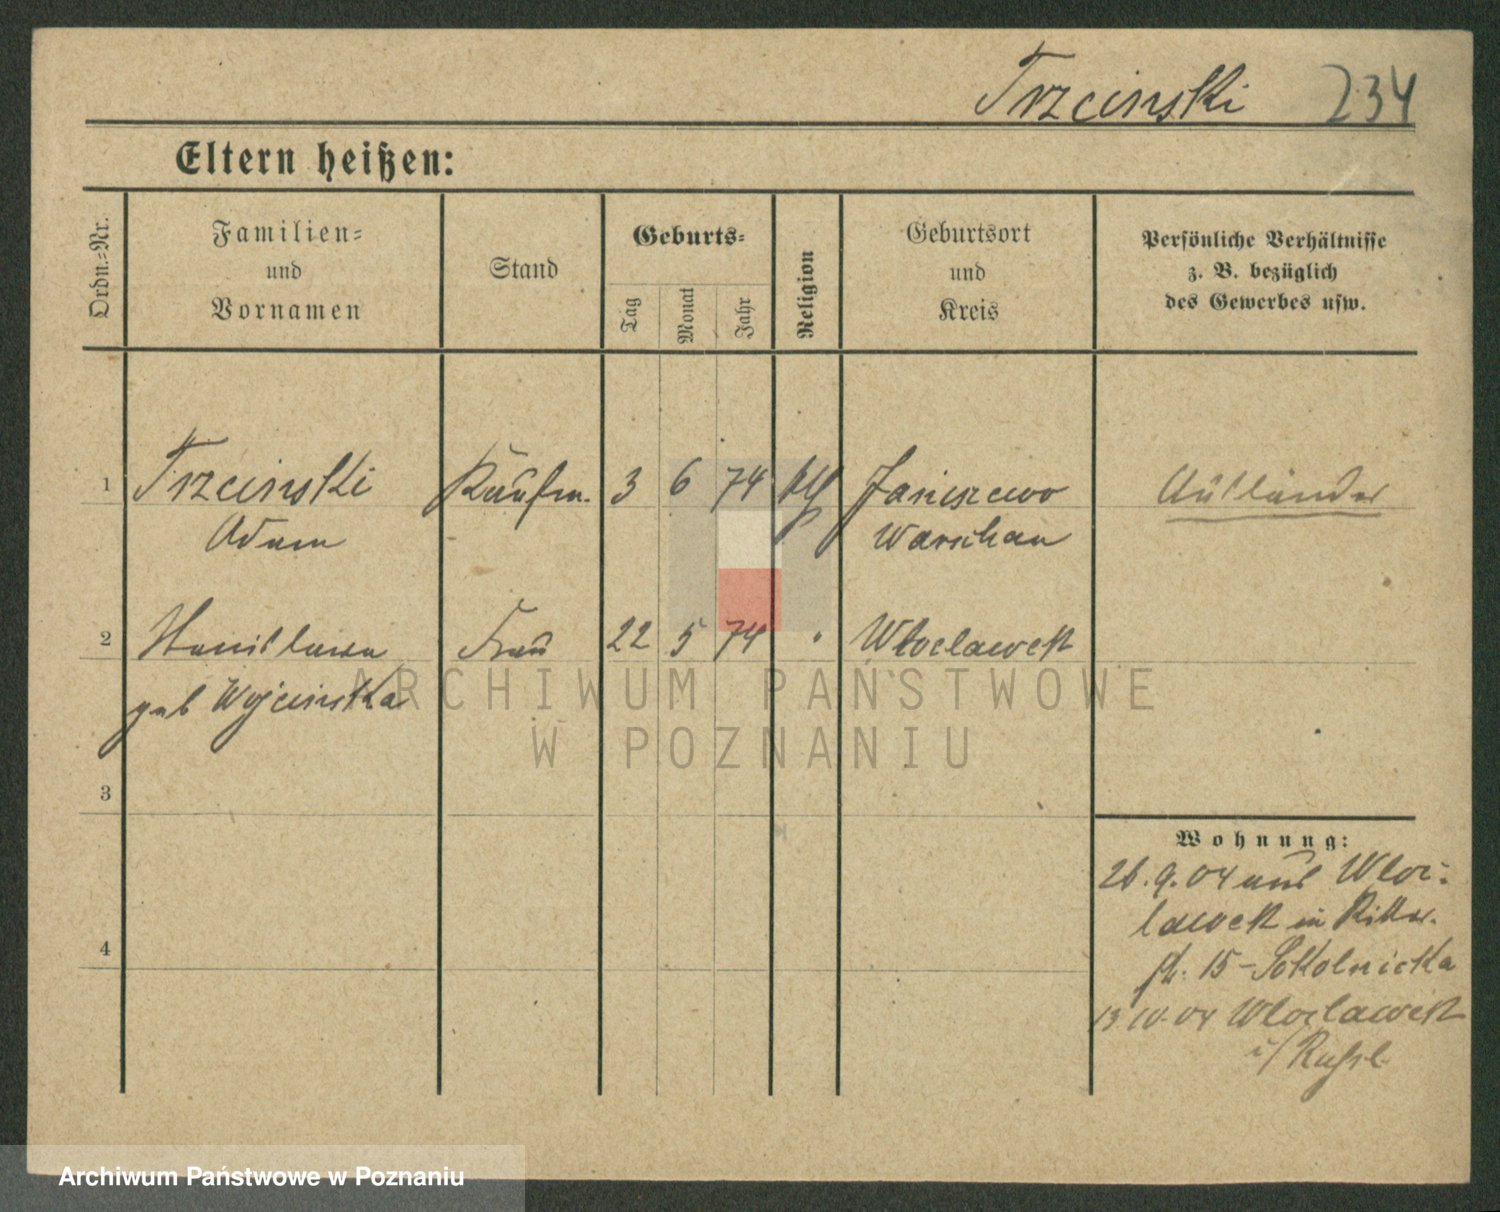 Trzcinski 234
Eltern heißen:
Ordn.-Nr.
Familien-
und
Vornamen
Stand
Geburts-
Tag
Monat
Jahr
Religion
Geburtsort
und
Kreis
Persönliche Verhältnisse
z. B. bezüglich
des Gewerbes usw.
1 Trzcinski Kaufm. 3 6 74 Janiszewo Ausländer
Adam Warschau
2 Stanislawa Frau 22 5 74 " Wloclawek
geb Wojcinska
ARCHIWUM PAŃSTWOWE
W POZNANIU
3
Wohnung:
26.9.04 aus Wloc-
lawek in Ritter-
4
str. 15 - Sokolnicka
13 10. 04 Wloclawek
i/Russl.
Archiwum Państwowe w Poznaniu